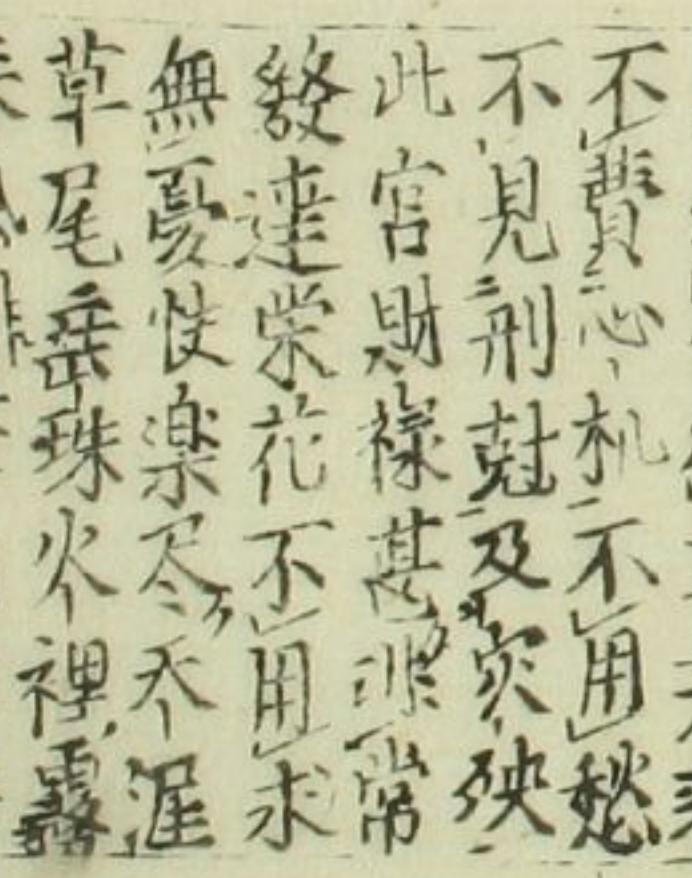 不費心机不用愁
不見刑尅及灾殃
此宮財禄甚非常
發達荣花不用求
無憂快楽尽天涯
草尾珠火裡露